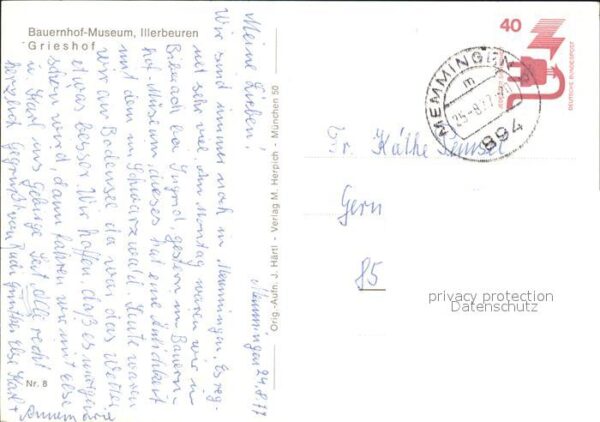 Bauernhof-Museum, Illerbeuren
Grieshof
Memmingen 24.8.77
Meine Lieben!
Wir sind immer noch in Memmingen. Es reg-
net sehr viel. Am Montag waren wir in
Biberach bei Ingrid, gestern im Bauern-
hof-Museum, dieses hat eine Ähnlichkeit
mit dem im Schwarzwald. Heute waren
wir am Bodensee da war das Wetter
etwas besser. Wir hoffen, daß es morgen
schön wird, dann fahren wir mit Else
u. Karl ins Gebirge. Seid Alle recht
herzlich gegrüßt von Günther Else Karl +
Annemarie
Nr. 8
Orig.-Aufn. J. Härtl - Verlag M. Herpich - München 50
40
DEUTSCHE BUNDESPOST
MEMMINGEN
m
25.-8.77
894
Fr. Käthe
Gern
85
privacy protection
Datenschutz